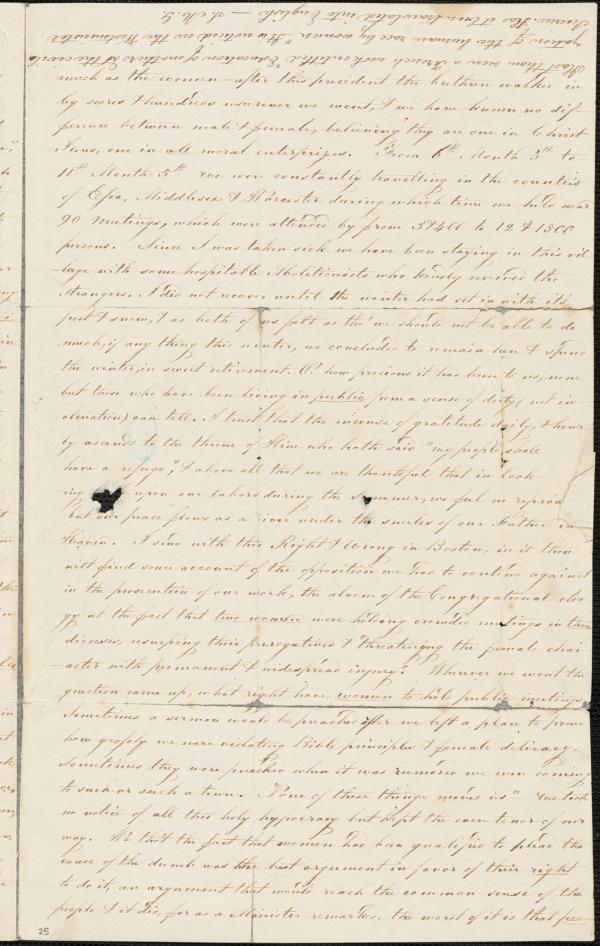 Hast thou seen a French work entitled Education of mothers or the civili
zation of the human race by women. It is noticed in the Westminster
Review. Has it been translated into English — S. M. G.
much as the women—after this president the brethren walked in
by scores & hundreds wherever we went, & we have known no dif-
ference between male & female, believing they are one in Christ
Jesus, one in all moral enterprizes. From 6th Month 5th to
11th Month 5th we were constantly travelling in the counties
of Essex, Middlesex & Worcester during which time we held near
90 meetings, which were attended by from 3 & 400 to 12 & 1500
persons. Since I was taken sick we have been staying in this vil
lage with some hospitable Abolitionists who kindly received the
strangers. I did not recover until the winter had set in with its
frost & snow, & as both of us felt as tho' we should not be able to do
much, if any thing this winter, we concluded to remain here & spend
the winter, in sweet retirement. O! how precious it has been to us, none
but those who have been living in public from a sense of duty (not in
clination) can tell. I trust that the incense of gratitude daily, & hour
ly ascends to the throne of Him who hath said "my people shall
have a refuge", & above all that we are thankful that in look-
ing upon our labors during the summer, we feel no reproof
but our peace flows as a river under the smiles of our Father in
Heaven. I send with this Right & Wrong in Boston, in it thou
wilt find some account of the opposition we had to contend against
in the prosecution of our work, the alarm of the Congregational cler
gy at the fact that two women were holding crowded meetings in their
dioceses, usurping their prerogatives & "threatening the female char
acter with permanent & widespread injury." Wherever we went the
question came up, what right have women to hold public meetings
Sometimes a sermon would be preached after we left a place to prove
how grossly we were violating Bible principles & female delicacy.
Sometimes they were preached when it was rumored we were coming
to such or such a town. "None of these things moved us"— we took
no notice of all this holy hypocracy but kept the even tenor of our
way. We that the fact that women had been qualified to plead the
cause of the dumb was the best argument in favor of their right
to do it, an argument that would reach the common sense of the
people & it did, for as a Minister remarked, the worst of it is that peo-
25